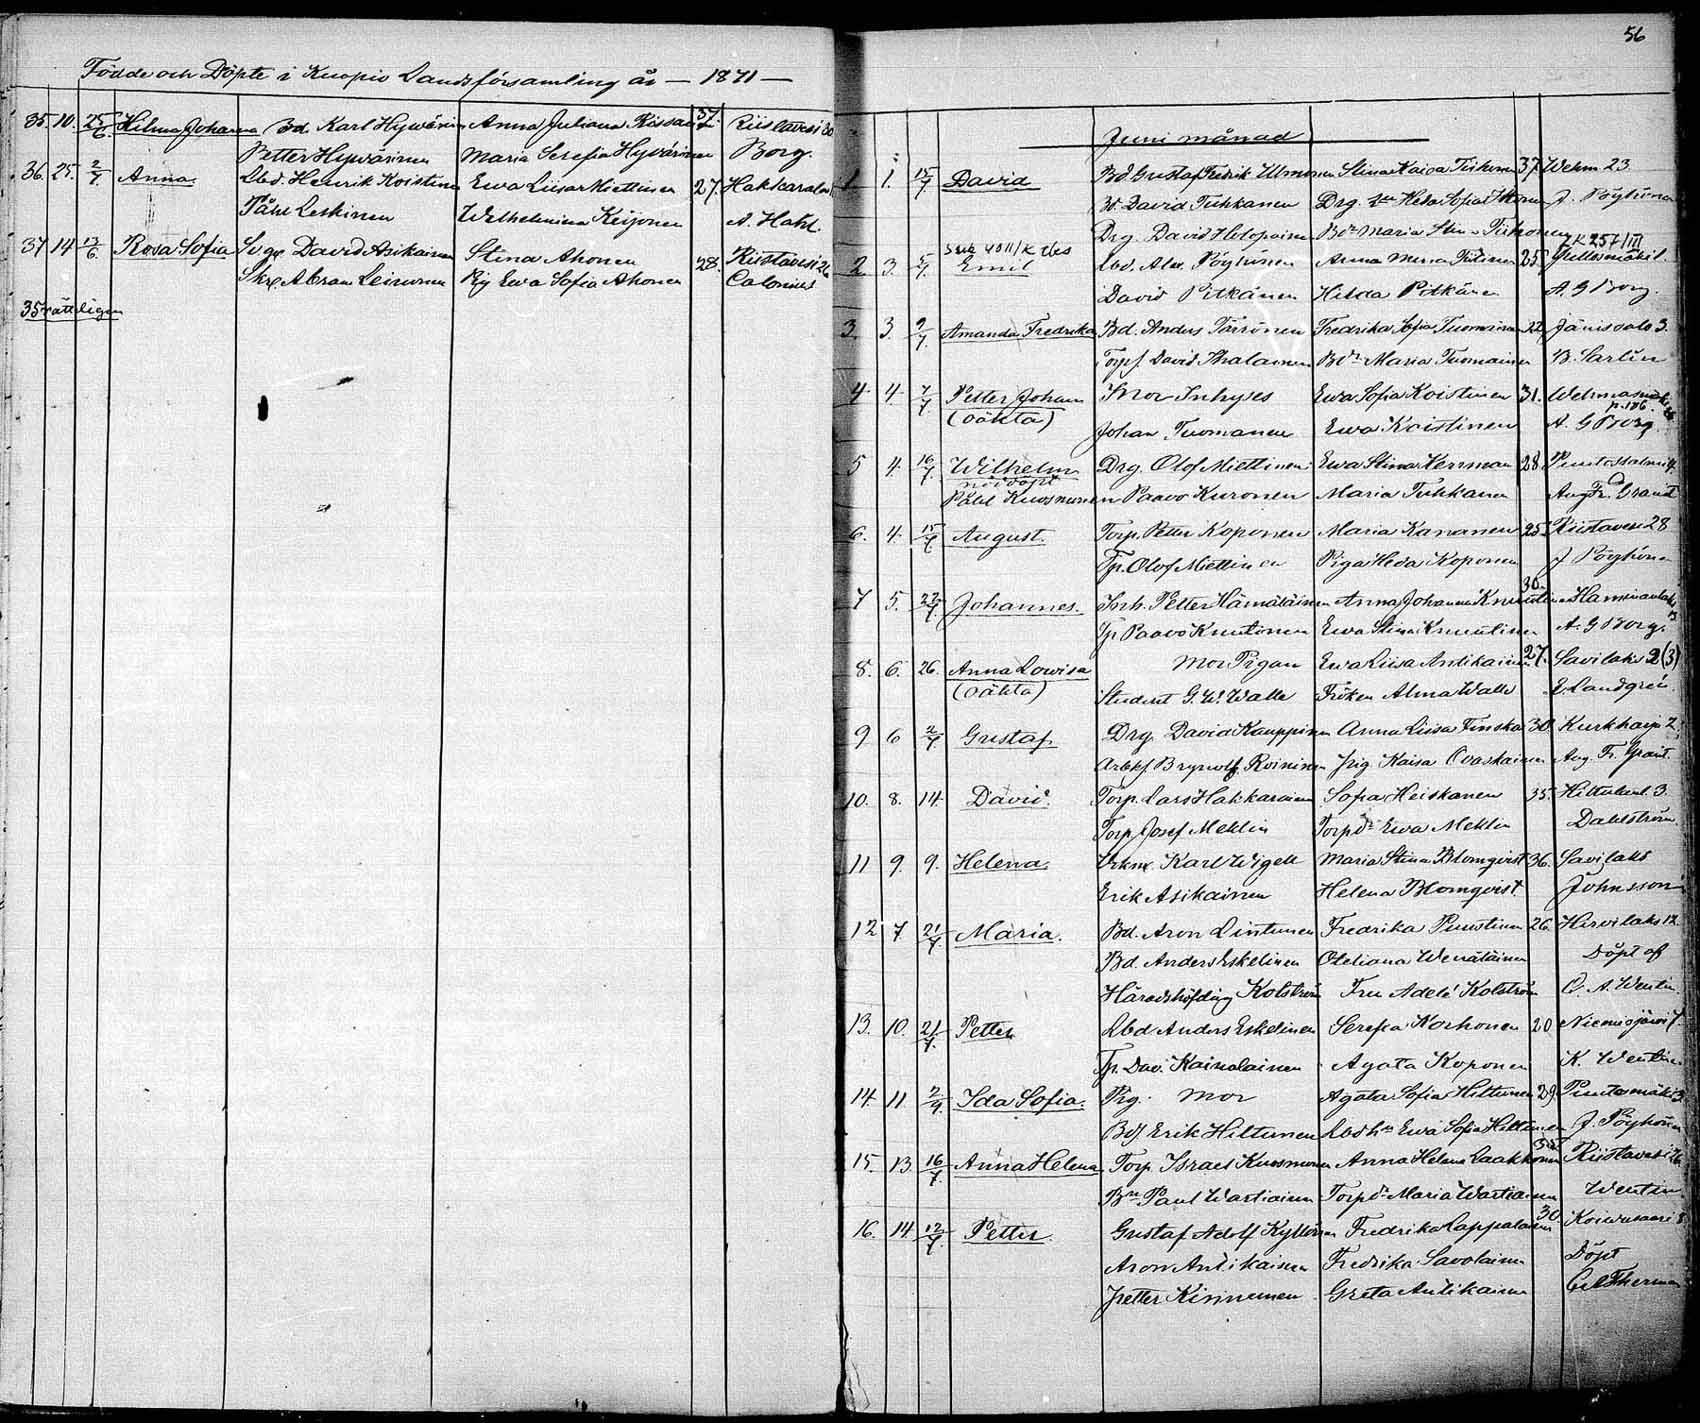 Födde och Döpte i Kuopio Landsförsamling år — 1871 —
35. 10. 25/6. Hilma Johanna Bd. Karl Hyvärin Anna Juliana Rissan 37. Riistavesi 30
Petter Hyvärinen Maria Serefia Hyvärinen Borg.
36. 25. 2/7. Anna Lbd. Henrik Koistinen Ewa Liisa Miettinen 27. Hakkarala
Påhl Leskinen Wilhelmina Keijonen A. Hahl
37 14 13/6. Rosa Sofia David Asikainen Stina Ahonen 28. Riistavesi 26
Abram Leinonen Pig Ewa Sofia Ahonen Calonius
35 rätteligen
56
Juni månad
1. 1. 15/7 David Bd. Gustaf Fredrik Ulmonen Stina Kaisa Tiihonen 37. Wehm 23.
David Tuhkanen Drg. Heda Sofia J. Pöyhönen
Drg. David Bdr Maria Stina Tiihonen
2. 3. 5/7 Emil Lbd. Alex. Pöyhönen Anna Maria 25.
David Pitkänen Hilda Pitkänen A. G Borg.
3. 3. 9/7. Amanda Fredrika Bd. Anders Törrönen Fredrika Sofia Tuomainen 22. Jänissalo 3.
Torp. David Ihalainen Bdr Maria Tuomainen B. Sarlin
4. 4. 7/7. Petter Johan Mor Inhyses Ewa Sofia Koistinen 31. Wehmasmäki
(oäkta) p. 186.
Johan Tuomanen Ewa Koistinen A. G Borg
5 4. 16/7. Wilhelm Drg. Olof Miettinen Ewa Stina Herrman 28. Puutossalmi 4.
nöddöpt
Påhl Kuosmanen Paavo Kuronen Maria Tuhkanen Aug. Fr. Granit
6. 4. 15/7 August. Torp. Petter Koponen Maria Kananen 25. Riistavesi 28
Tp. Olof Miettinen Piga Heda Koponen J Pöyhönen
7 5. 22/7 Johannes. Inh. Petter Hämäläinen Anna Johanna Knuutinen 30. Haminanlaks
Tp Paavo Knutinen Ewa Stina Knuutinen A. G Borg.
8. 6. 26. Anna Lowisa Mor Pigan Ewa Liisa Antikainen 27. Savilaks 2 (3)
(oäkta) Student G. W. Walle Fröken Alma Walle E. Landgrén
9 6 2/7 Gustaf. Drg. David Kauppinen Anna Liisa Finska 30. Kurkharju 2
Arbkf Brynolf Roininen Pig Kaisa Ovaskainen Aug. Fr. Granit.
10. 8. 14. David. Torp. Lars Hakkarainen Sofia Heiskanen 35. Hiltulanl. 3.
Torp Josef Mehlin Torpdr Ewa Mehlin Dahlström.
11 9. 9. Helena. Karl Wigell Maria Stina Blomqvist 36. Savilaks
Erik Asikainen Helena Blomqvist Johnsson
12 7 21/7. Maria. Bd. Aron Lintunen Fredrika Puustinen 26. Hirvilaks 12
Bd. Anders Eskelinen Otteliana Wenäläinen Döpt af
Häradshöfding Kolström Fru Adelé Kolström C. A. Wentin
13. 10. 21/7. Petter Lbd Anders Eskelinen Serefia Korhonen 20 Niemisjärvi 7.
Tp. Dav. Kainolainen Agata Koponen K. Wentin
14. 11 2/7. Ida Sofia. Pig. Mor Agata Sofia Hiltunen 29. Puutosmäki 3
Bdf Erik Hiltunen Lbdhn Ewa Sofia Hiltunen J. Pöyhönen
15. 13 16/7. Anna Helena Torp. Israel Kuosmanen Anna Helena Laakkonen Riistavesi 26
Bn Paul Wartiainen Torpdr Maria Wartiainen Wentin
16. 14. 12/7. Petter. Gustaf Adolf Kyllönen Fredrika Lappalainen 30. Koivusaari 8.
Aron Antikainen Fredrika Savolainen Döpt
Petter Kinnunen Greta Antikainen